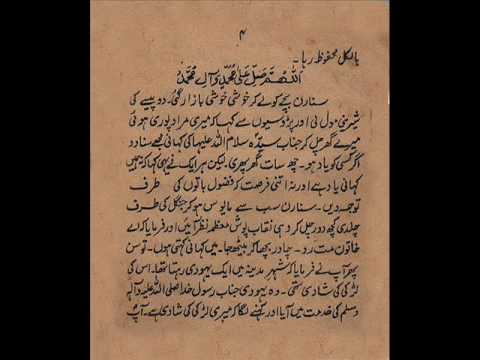 ۴
بالکل محفوظ رہا۔
اَللّٰهُمَّ صَلِّ عَلٰى مُحَمَّدٍ وَّاٰلِ مُحَمَّدٍ
سنارن بچے کو لے کر خوشی خوشی بازار گئی۔ دو پیسے کی
شیرینی مول لی اور پڑوسیوں سے کہا کہ میری مراد پوری ہوئی
میرے گھر چل کر جناب سیدہ سلام اللہ علیہا کی کہانی مجھے سنا دو
اگر کسی کو یاد ہو۔ چھ سات گھر پھری۔ لیکن ہر ایک نے یہی کہا کہ نہ ہمیں
کہانی یاد ہے اور نہ اتنی فرصت کہ فضول باتوں کی طرف
توجہ دیں۔ سنارن سب سے مایوس ہو کر جنگل کی طرف
چلدی کچھ دور چل کر وہی نقاب پوش معظمہ نظر آئیں اور فرمایا کہ اے
خاتون مت رو۔ چادر بچھا کر بیٹھ جا۔ میں کہانی کہتی ہوں۔ تو سن
پھر آپ نے فرمایا کہ شہر مدینہ میں ایک یہودی رہتا تھا۔ اس کی
لڑکی کی شادی تھی۔ وہ یہودی جناب رسول خدا صلی اللہ علیہ وآلہٖ
وسلم کی خدمت میں آیا اور کہنے لگا کہ میری لڑکی کی شادی ہے۔ آپؐ